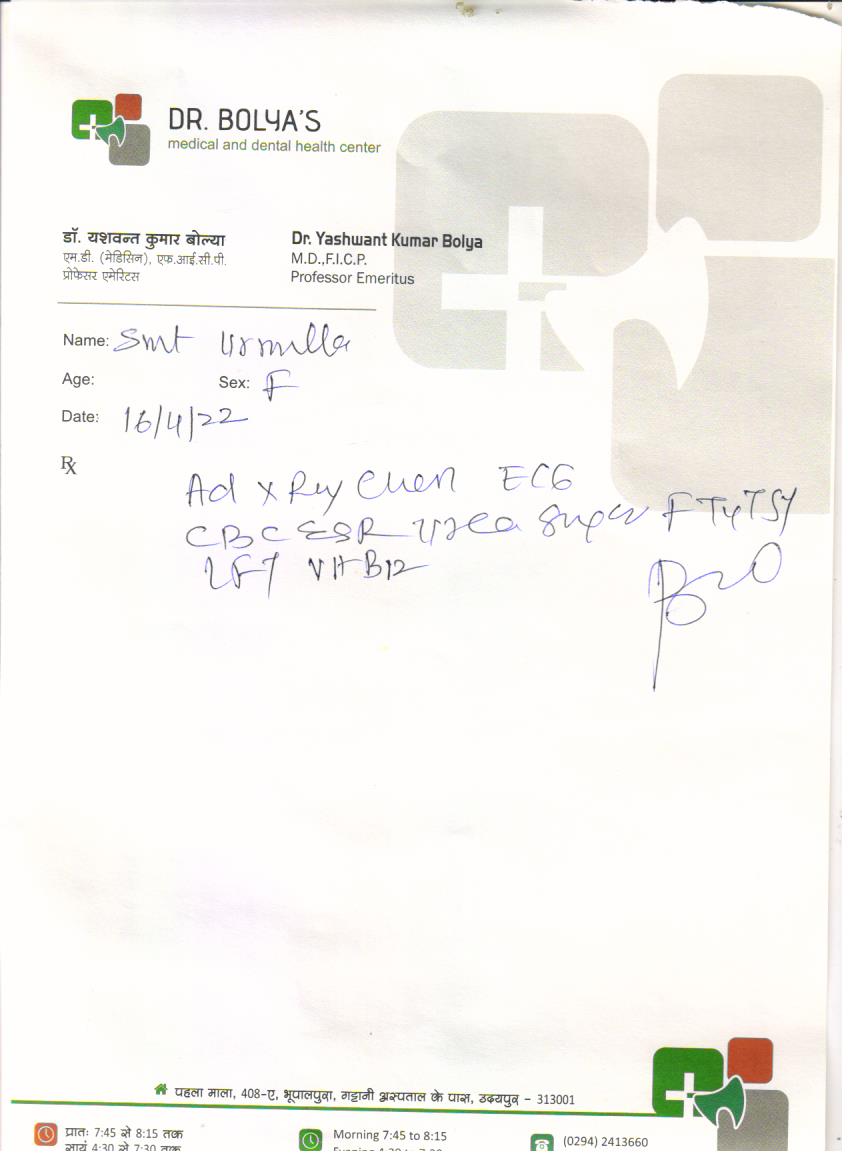 DR. BOLYA'S
medical and dental health center
डॉ. यशवन्त कुमार बोल्या
एम.डी. (मेडिसिन), एफ.आई.सी.पी.
प्रोफेसर एमेरिटस
Dr. Yashwant Kumar Bolya
M.D.,F.I.C.P.
Professor Emeritus
Name: Smt Urmilla
Age: Sex: F
Date: 16/4/22
Rx
Ad X Ray Chest ECG
CBC ESR Urea Sugar FT4 TSH
LFT Vit B12
पहला माला, 408-ए, भूपालपुरा, गट्टानी अस्पताल के पास, उदयपुर - 313001
प्रातः 7:45 से 8:15 तक
सायं 4:30 से 7:30 तक
Morning 7:45 to 8:15
(0294) 2413660